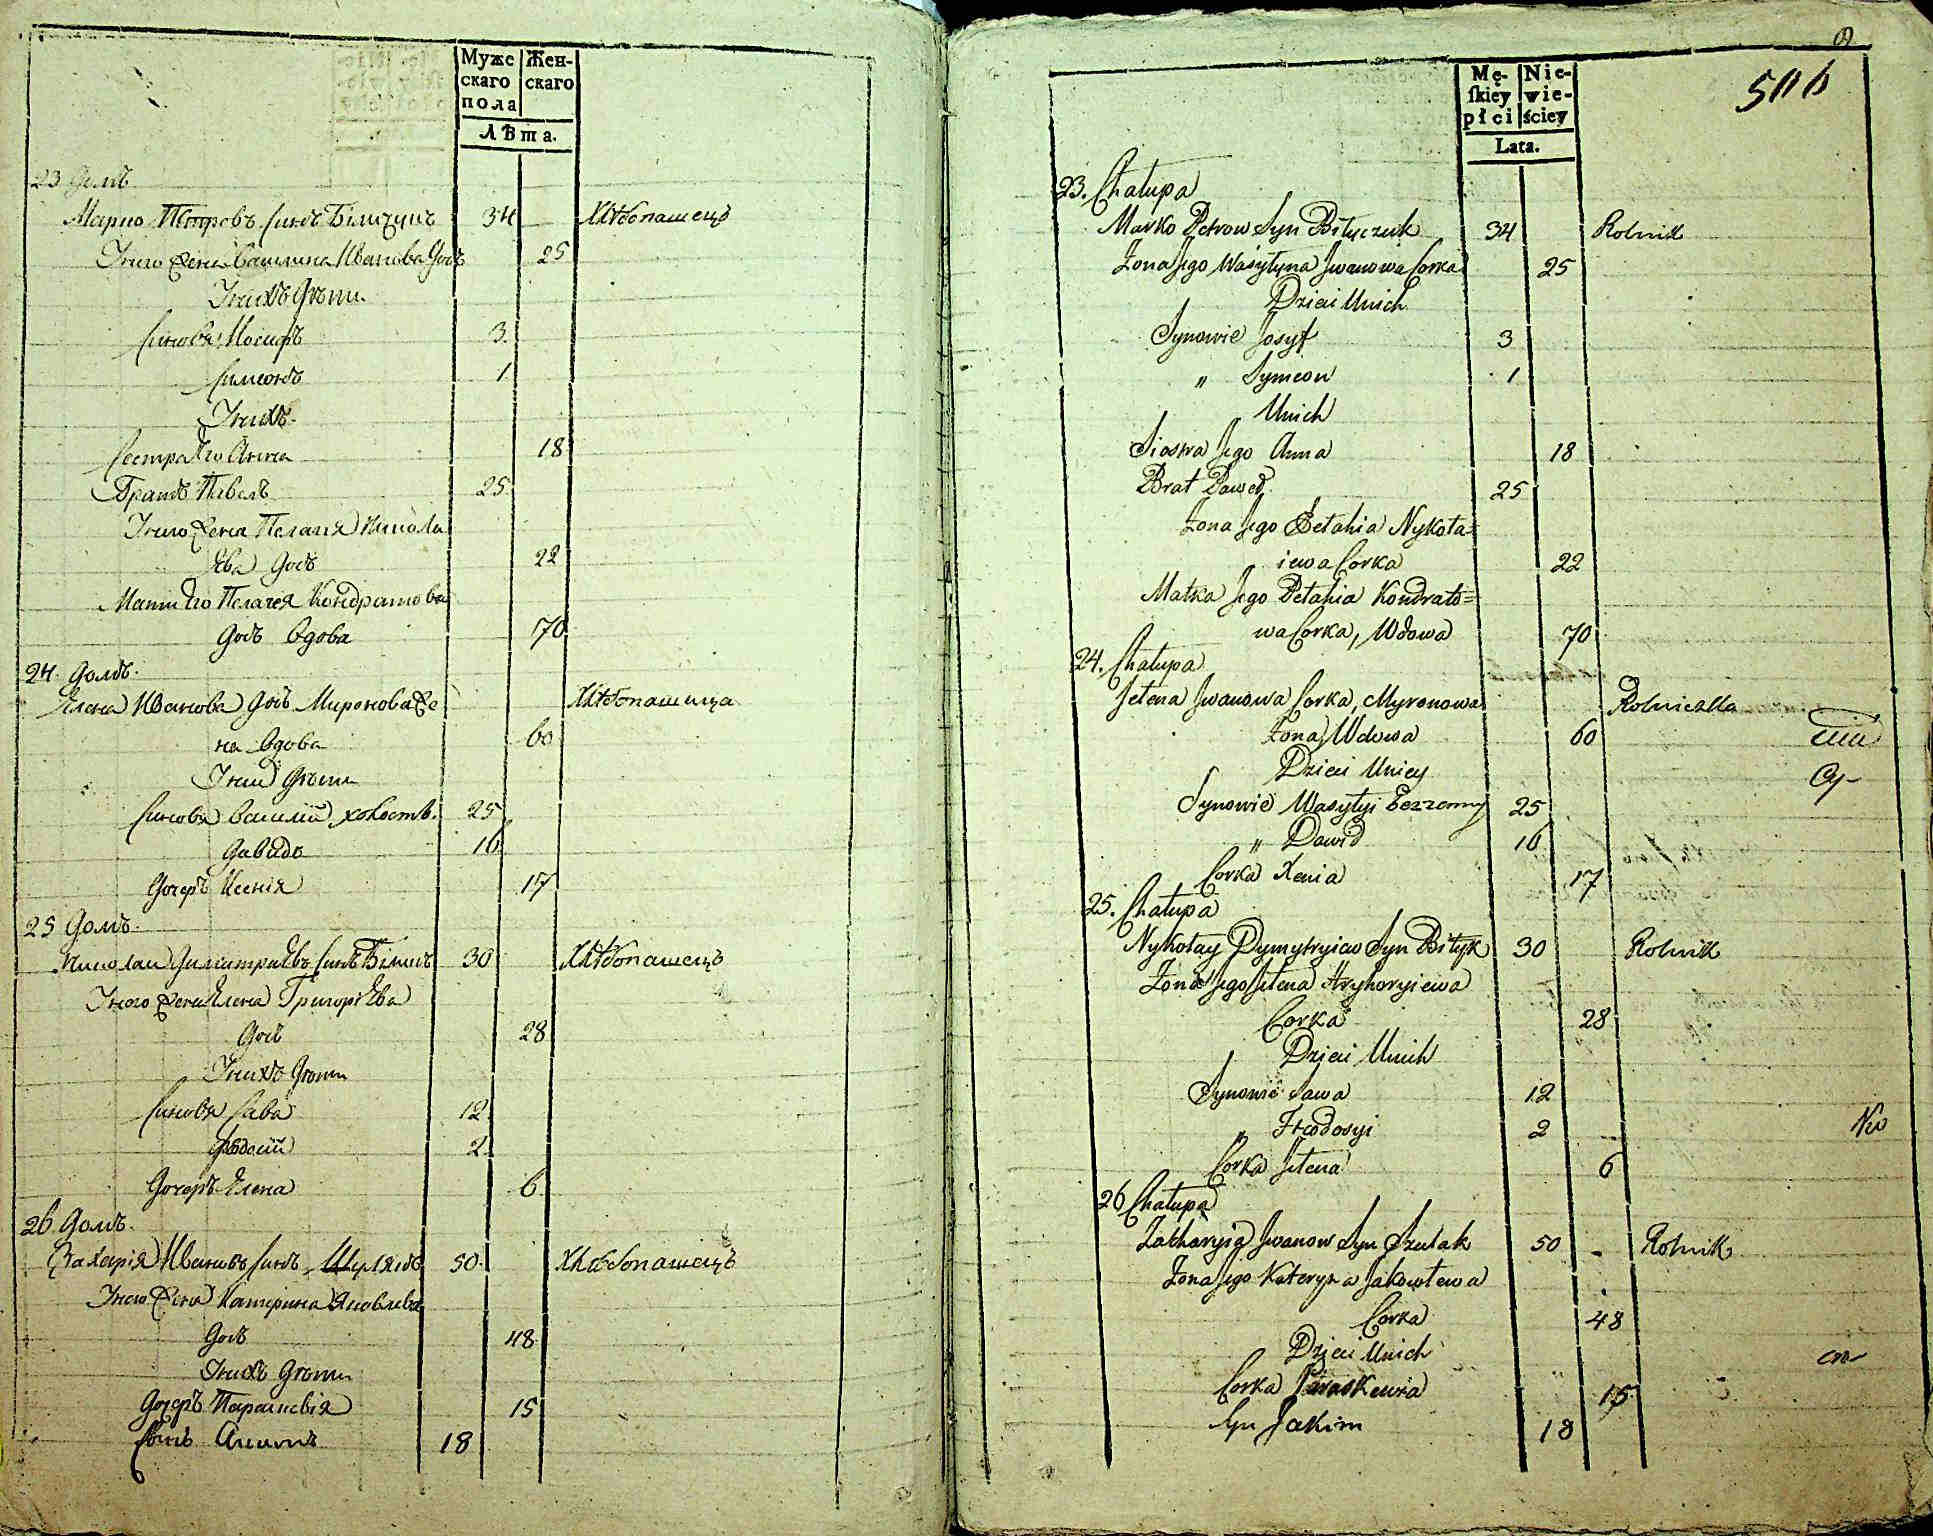 Муже
скаго
пола
Жен-
скаго
Лѣта.
23 Домъ
Марко Петровъ Синъ Білычукъ 34 Хлѣбопашецъ
Іного Жена Василина Иванова Дочъ 25
Інихъ Дѣти
Синовя Иосифъ 3.
Симеонъ 1
Інихъ
Сестра Его Анна 18
Братъ Павелъ 25.
Іного Жена Пелагія Никола
Ева Дочъ 22
Мати Его Пелагея Кондратова
Дочъ Вдова 70
24. Домъ.
Елена Иванова Дочъ Миронова Же Хлѣбопашица
на Вдова 60
Інии Дѣти
Синовя Василій холостъ. 25
Давидъ 16
Дочеръ Ксенія 17
25 Домъ.
Николай Димитріевъ Синъ Білыкъ 30 Хлѣбопашецъ
Іного Жена Елена Григоріева
Дочъ 28
Інихъ Дѣти
Синовя Сава 12
Феодосій 2
Дочеръ Елена 6
26 Домъ.
Захарія Ивановъ Синъ Шулякъ 50. Хлѣбопашецъ
Іного Жена Катерина Яковлева
Дочъ 48.
Інихъ Дѣти
Дочеръ Параскевія 15
Синъ Акимъ 18
Mę-
skiey
płci
Nie-
wie-
ściey
Lata.
23. Chałupa
Marko Petrow Syn Biłyczuk 34 Rolnik
Żona Jego Wasylyna Jwanowa Corka 25
Dzieci Unich
Synowie Josyf 3
„ Symeon 1
Unich
Siostra Jego Anna 18
Brat Paweł 25
Żona Jego Pełahia Nykoła=
iewa Corka 22
Matka Jego Pełahia Kondrato=
wa Corka, Wdowa 70
24. Chałupa
Jełena Jwanowa Corka, Myronowa Rolniczka
Żona, Wdowa 60
Dzieci Unicy
Synowie Wasylyi Bezżenny 25
„ Dawid 16
Corka Xenia 17
25. Chałupa
Nykołay Dymytryiew Syn Biłyk 30 Rolnik
Żona Jego Jełena Hryhoryiewa
Corka 28
Dzieci Unich
Synowie Sawa 12
„ Fteodosyi 2
Corka Jełena 6
26 Chałupa
Zacharyia Jwanow Syn Szulak 50 Rolnik
Żona Jego Kateryna Jakowlewa
Corka 48
Dzieci Unich
Corka Paraskewia 15
Syn Jakim 18